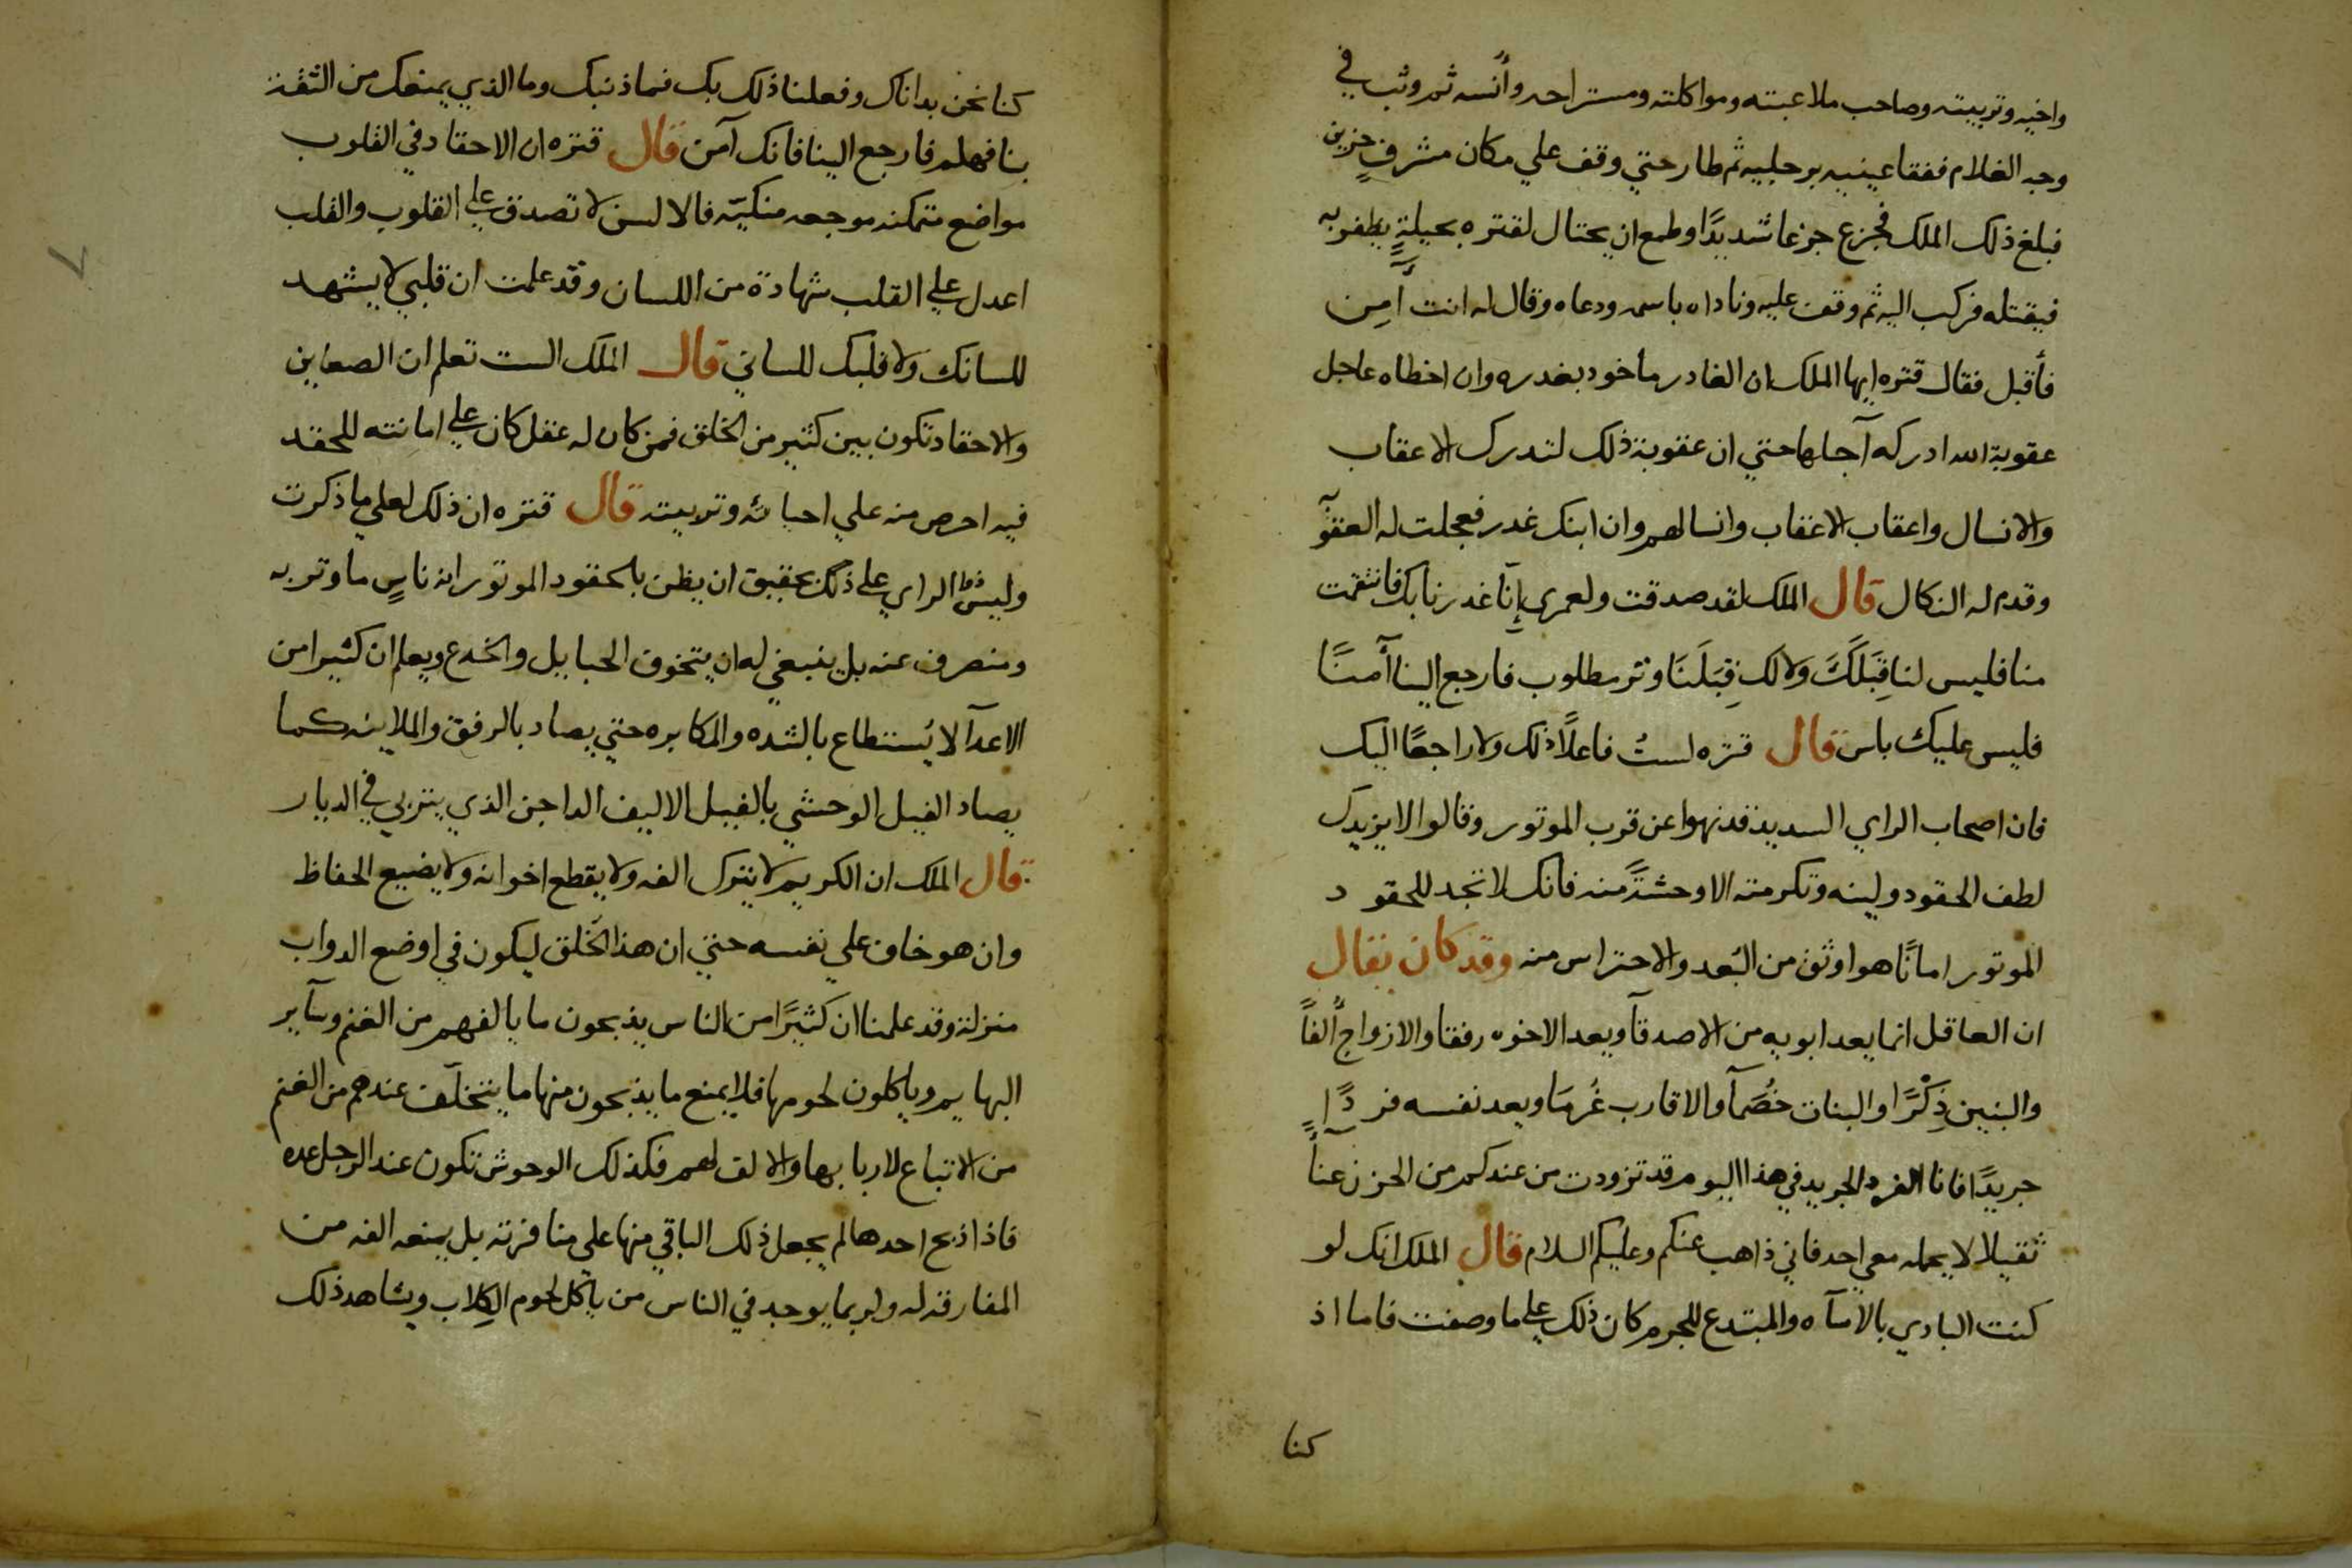 واخيه وتربيته وصاحب ملاعبته ومواكلته ومستراحه وأنسه ثم وثب في
وجه الغلام ففقا عينيه برجليه ثم طار حتي وقف علي مكان مشرف حزين
فبلغ ذلك الملك فجزع جزعا شديدًا وطمع ان يحتال لقتره بحيلةٍ يظفر به
فيقتله فركب اليه ثم وقف عليه وناداه باسمه ودعاه وقال له انت آمِن
فأقبل فقال قتره ايها الملك ان الغادر ماخود بغدره وان اخطاه عاجل
عقوبة الله ادركه آجلها حتي ان عقوبة ذلك لتدرك الاعقاب
والانسال واعقاب الاعقاب وانسالهم وان ابنك غدر فعجلت له العقوبة
وقدم له النكال قال الملك لقد صدقت ولعمري إنّا غدرنا بك فانتقمت
منا فليس لنا قِبَلَكَ ولا لك قِبَلَنَا وتر مطلوب فارجع الينا آمنًا
فليس عليك باس قال قتره لستُ فاعلاً ذلك ولا راجعًا اليك
فان اصحاب الراي السديد قد نهوا عن قرب الموتور وقالوا لا يزيدك
لطف الحقود ولينه وتكرمته الا وحشةً منه فانك لا تجد للحقود
الموتور امانًا هو اوثق من البُعد والاحتراس منه وقد كان يقال
ان العاقل انما يعد ابويه من الاصدقآ ويعد الاخوه رفقا والازواج أُلفاً
والبنين ذِكْرًا والبنات خُصَمآ والاقارب غُرمَا ويعد نفسه فردًا
جريدًا فانا الفرد الجريد في هذا اليوم قد تزودت من عندكم من الحزن عنآً
ثقيلا لا يحمله معي احد فاني ذاهب عنكم وعليكم السلام قال الملك انك لو
كنت البادي بالاسآه والمبتدع للجرم كان ذلك علي ما وصفت فاما اذ
كنا
كنا نحن بداناك وفعلنا ذلك بك فما ذنبك وما الذي يمنعك من الثقة
بنا فهلم فارجع الينا فانك آمن قال قتره ان الاحقاد في القلوب
مواضع متمكنه موجعه منكيّه فالالسن لا تصدق علي القلوب والقلب
اعدل علي القلب شهادة من اللسان وقد علمت ان قلبي لا يشهد
للسانك ولا قلبك للساني قال الملك الست تعلم ان الضغاين
والاحقاد تكون بين كثير من الخلق فمن كان له عقل كان علي امانته للحقد
فيه احرص منه علي احيائه وتربيته قال قتره ان ذلك لعلي ما ذكرت
وليس الراي علي ذلك بحقيق ان يظن بالحقود الموتور انه ناسٍ ما وتر به
ومنصرف عنه بل ينبغي له ان يتخوف الحبايل والخدع ويعلم ان كثيرا من
الاعدآ لا يُستطاع بالشده والمكابره حتي يصاد بالرفق والملاينه كما
يصاد الفيل الوحشي بالفيل الاليف الداجن الذي يتربي في الديار
قال الملك ان الكريم لا يترك الفه ولا يقطع اخوانه ولا يضيع الحفاظ
وان هو خاف علي نفسه حتي ان هذا الخلق ليكون في اوضع الدواب
منزلة وقد علمنا ان كثيرًا من الناس يذبحون ما يالفهم من الغنم وسآير
البهايم وياكلون لحومها فلا يمنع ما يذبحون منها ما يتخلّف عندهم من الغنم
من الاتباع لاربابها والالف لهم فكذلك الوحوش تكون عند الرجل عده
فاذا ذبح احدها لم يجعل ذلك الباقي منها علي منافرته بل يمنعه الفه من
المفارقة له ولربما يوجد في الناس من ياكل لحوم الكِلاب ويشاهد ذلك